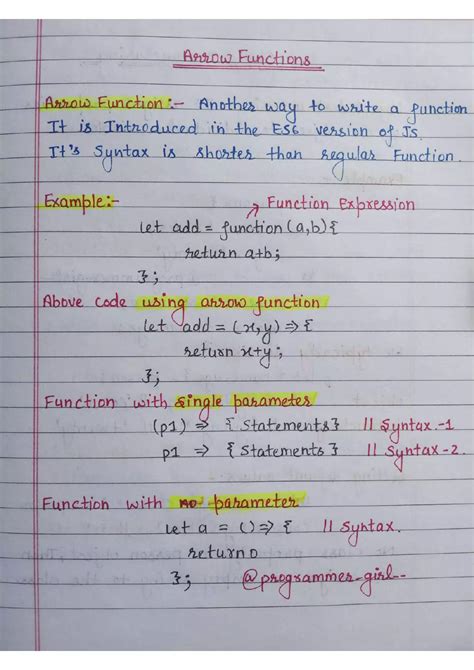 Arrow Functions
Arrow Function :- Another way to write a function
It is Introduced in the ES6 version of Js.
It's Syntax is shorter than regular Function.
Example:-
Function Expression
let add = function (a,b) {
return a+b;
};
Above code using arrow function
let add = (x,y) => {
return x+y;
};
Function with single parameter
(p1) => { Statements } // Syntax-1
p1 => { Statements } // Syntax-2.
Function with no parameter
let a = () => { // Syntax.
return 0
}; @programmer_girl--